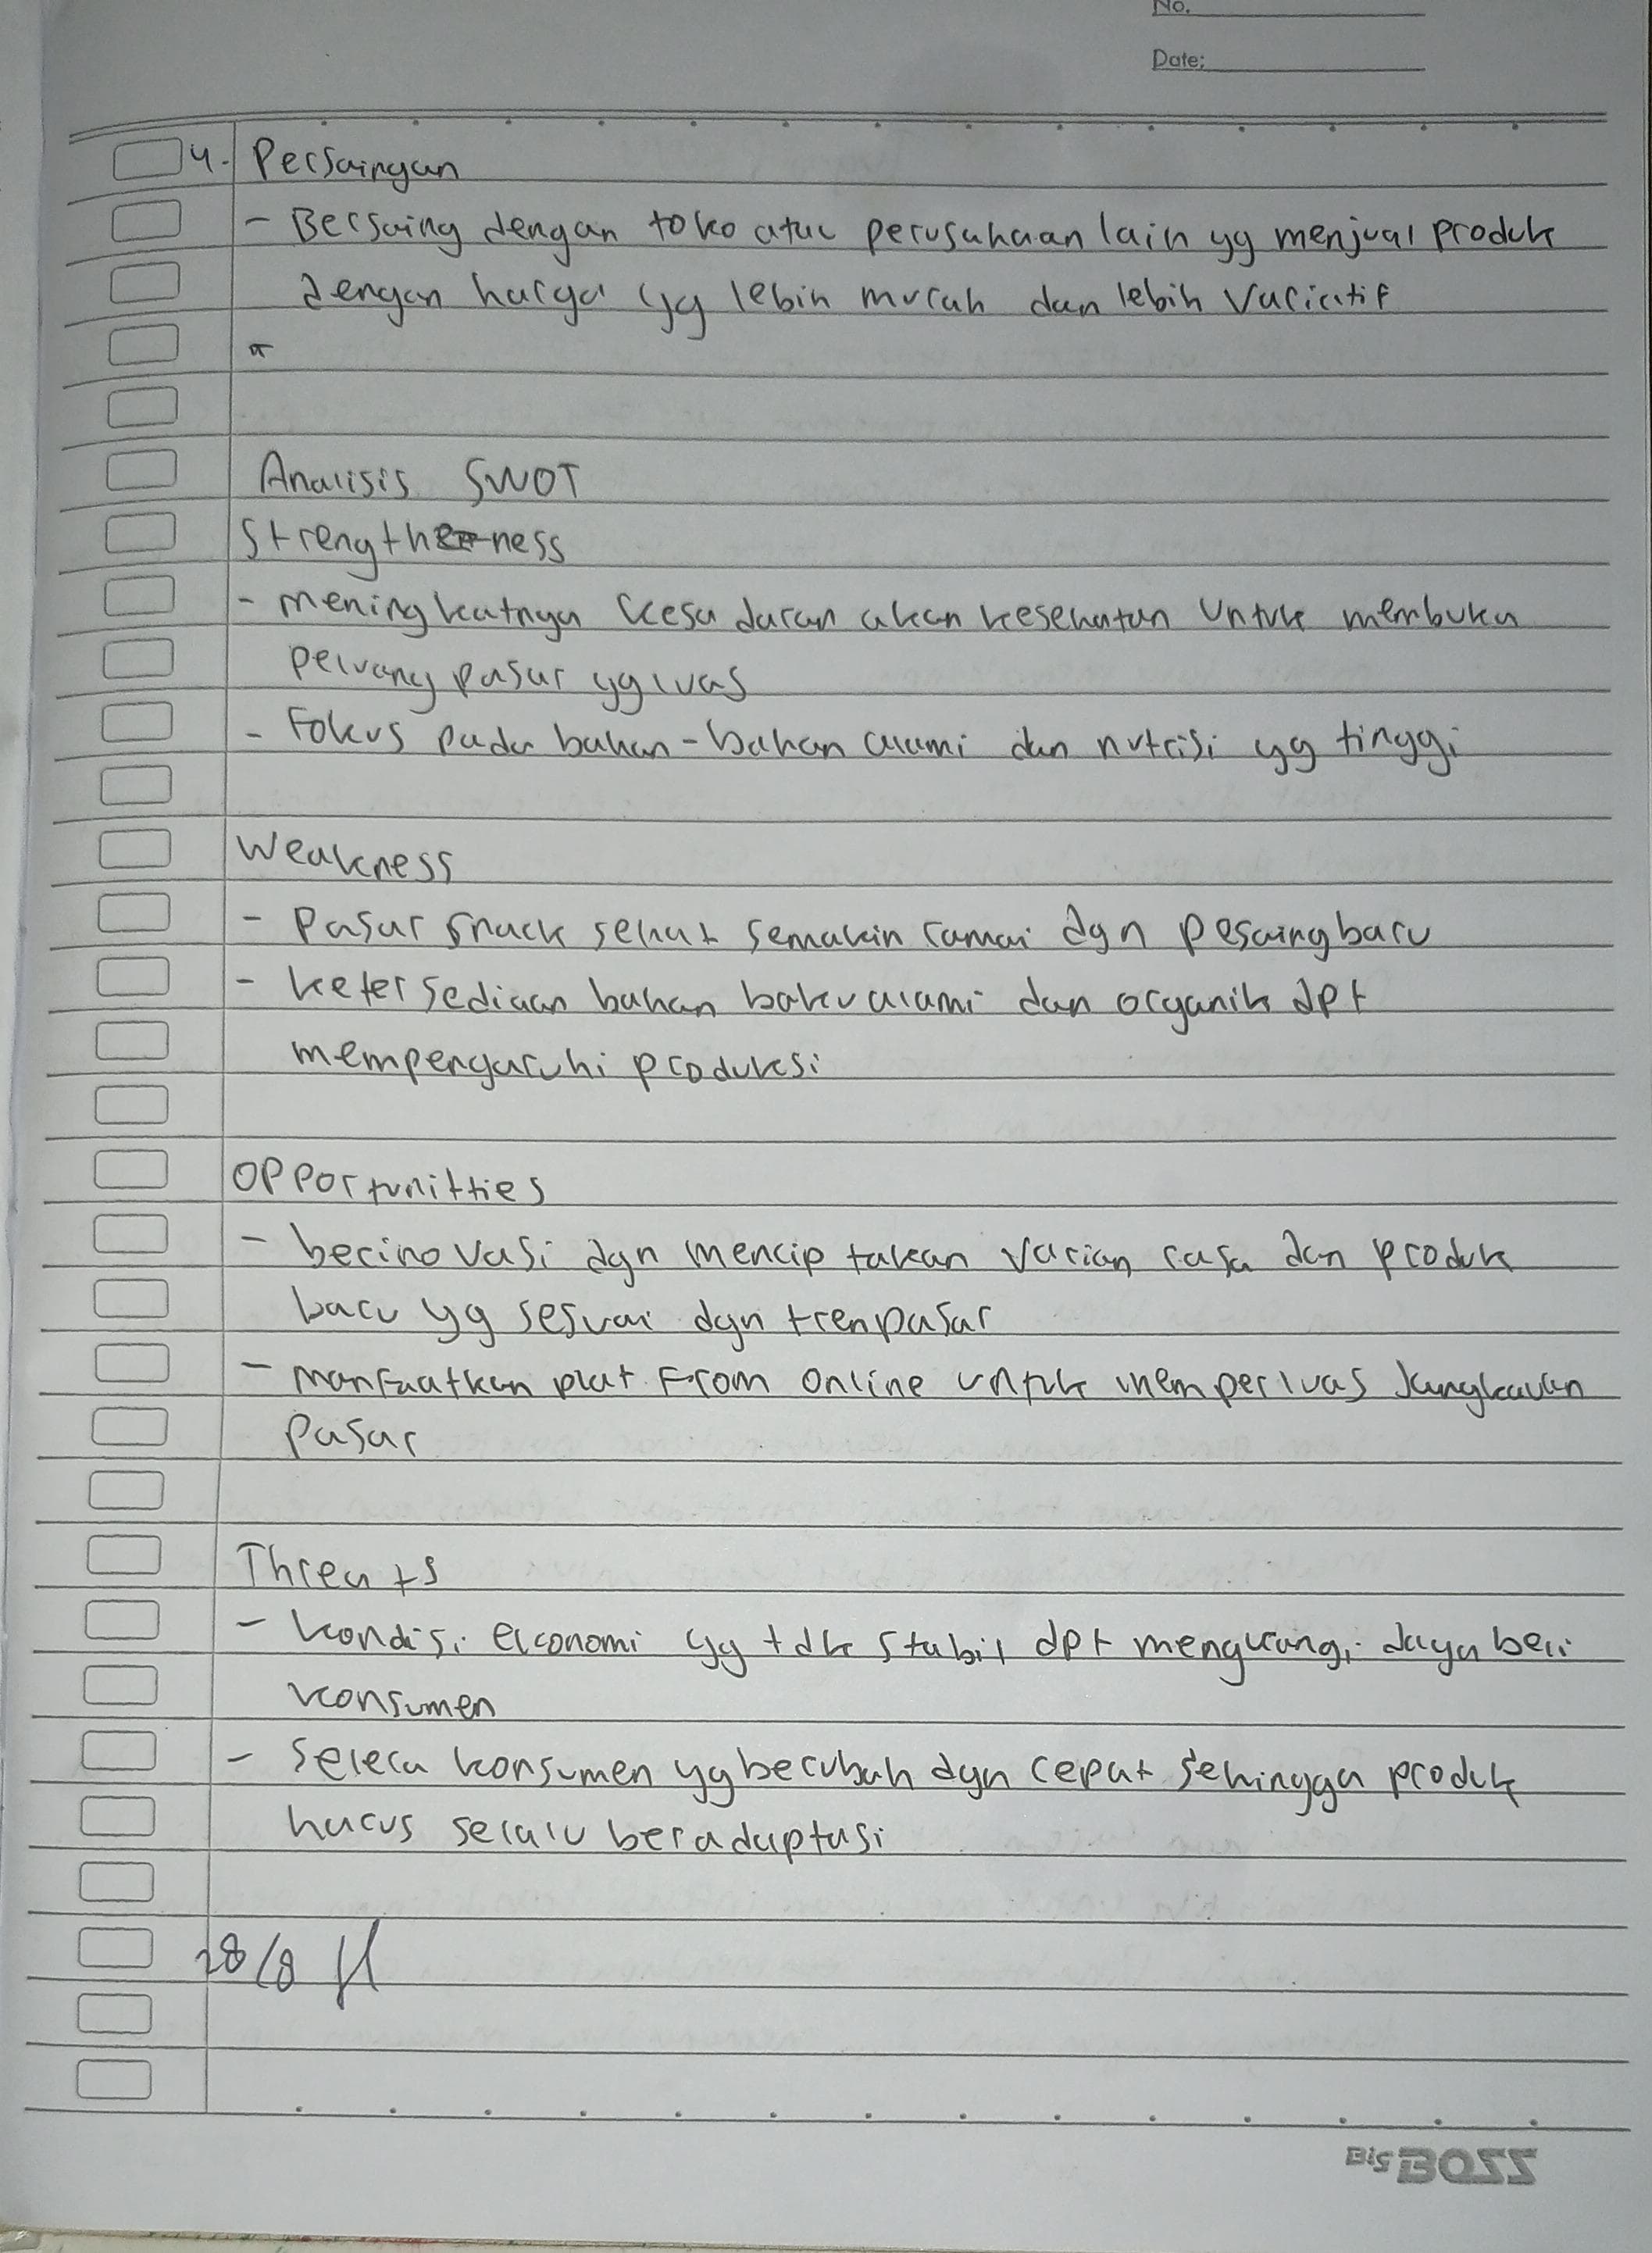 No.
Date:
4. Persaingan
- Bersaing dengan toko atau perusahaan lain yg menjual produk
dengan harga yg lebih murah dan lebih variatif
Analisis SWOT
Strengthness
- meningkatnya kesadaran akan kesehatan untuk membuka
peluang pasar yg luas
- Fokus pada bahan-bahan alami dan nutrisi yg tinggi
Weakness
- Pasar snack sehat semakin ramai dgn pesaing baru
- ketersediaan bahan baku alami dan organik dpt
mempengaruhi produksi
Opportunitties
- berinovasi dgn menciptakan varian rasa dan produk
baru yg sesuai dgn tren pasar
- manfaatkan plat From online untuk memperluas Jangkauan
pasar
Threats
- kondisi ekonomi yg tdk stabil dpt mengurangi daya beli
konsumen
- Selera konsumen yg berubah dgn cepat sehingga produk
harus selalu beradaptasi
28/8
Big BOSS